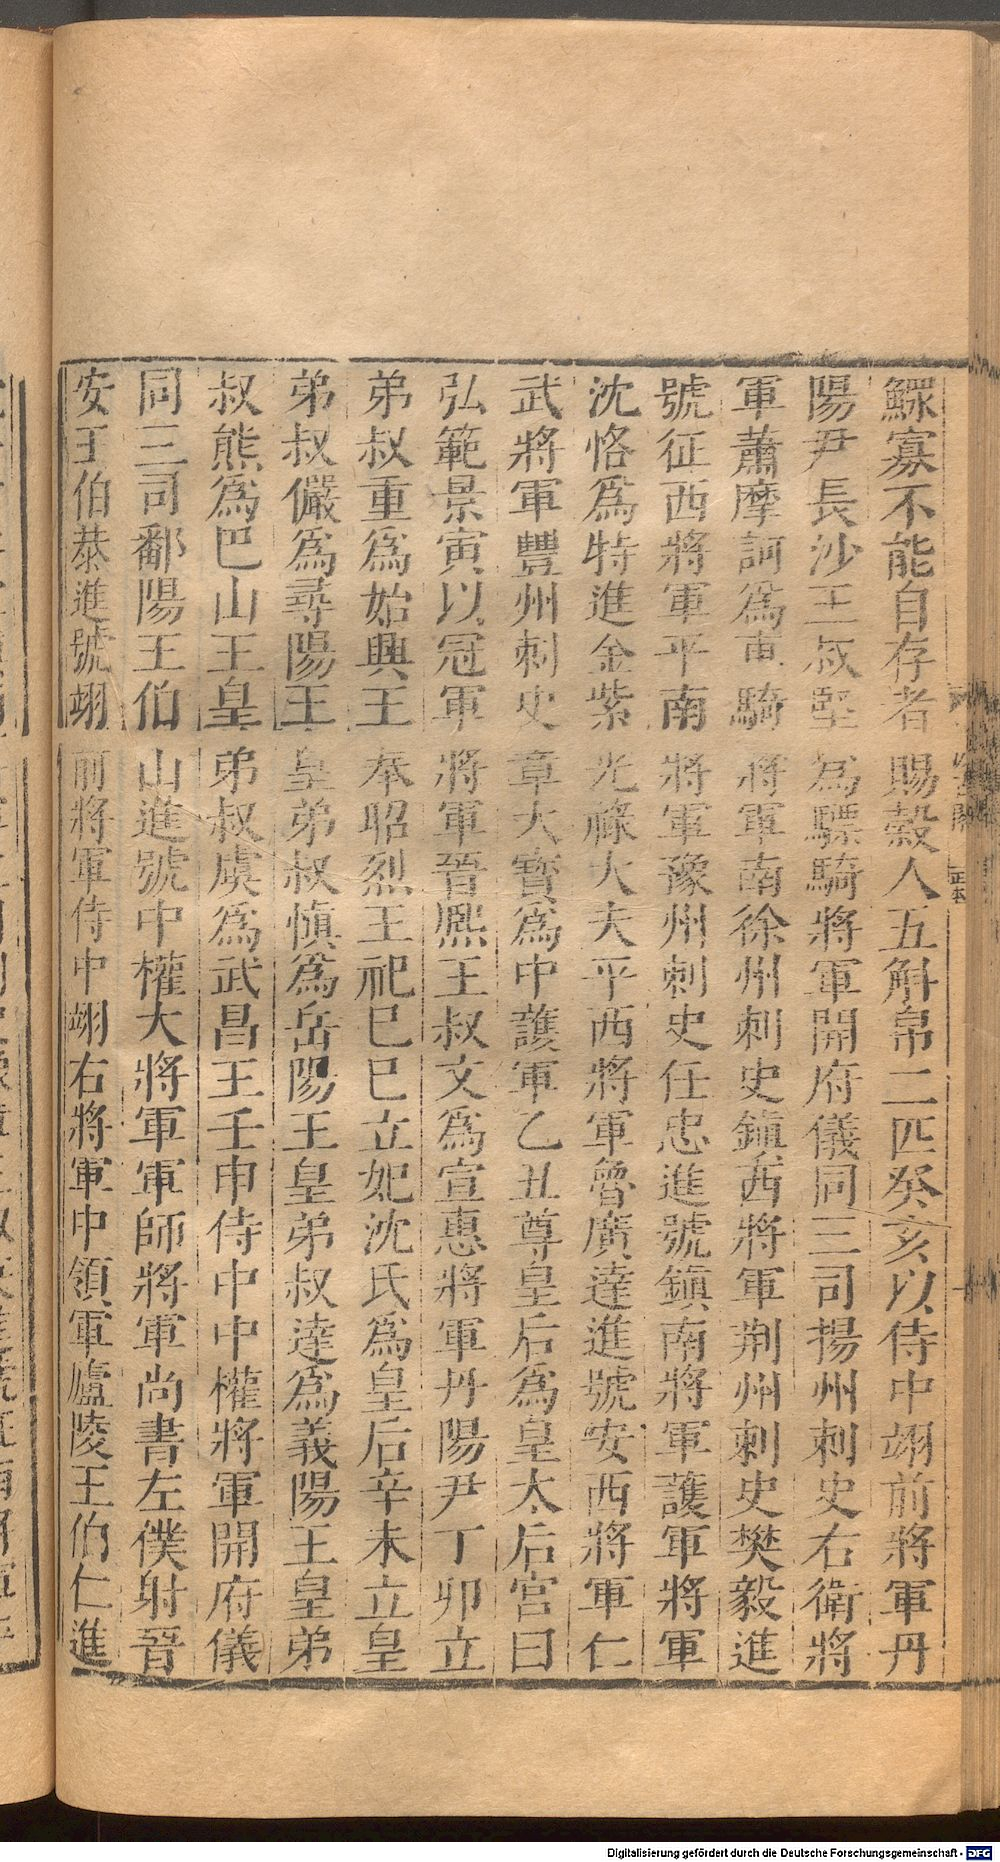 鰥寡不能自存者賜穀人五斛帛二匹癸亥以侍中翊前將軍丹
陽尹長沙王叔堅爲驃騎將軍開府儀同三司揚州刺史右衛將
軍蕭摩訶爲車騎將軍南徐州刺史鎭西將軍荆州刺史樊毅進
號征西將軍平南將軍豫州刺史任忠進號鎭南將軍護軍將軍
沈恪爲特進金紫光祿大夫平西將軍魯廣達進號安西將軍仁
武將軍豐州刺史章大寳爲中護軍乙丑尊皇后爲皇太后宮曰
弘範景寅以冠軍將軍晉熈王叔文爲宣惠將軍丹陽尹丁卯立
弟叔重爲始興王奉昭烈王祀巳巳立妃沈氏爲皇后辛未立皇
弟叔儼爲尋陽王皇弟叔愼爲岳陽王皇弟叔達爲義陽王皇弟
叔熊爲巴山王皇弟叔虞爲武昌王壬申侍中中權將軍開府儀
同三司鄱陽王伯山進號中權大將軍軍師將軍尚書左僕射晉
安王伯恭進號翊前將軍侍中翊右將軍中領軍廬陵王伯仁進
Digitalisierung gefördert durch die Deutsche Forschungsgemeinschaft - DFG